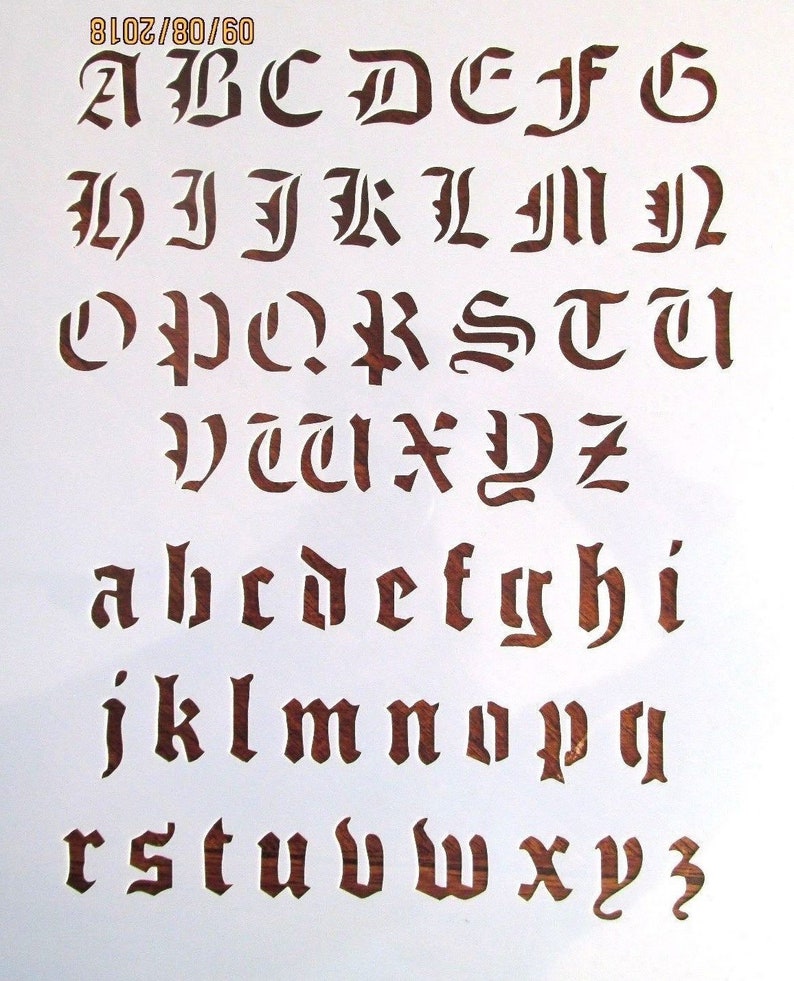 09/08/2018
A B C D E F G
H I J K L M N
O P Q R S T U
V W X Y Z
a b c d e f g h i
j k l m n o p q
r s t u v w x y z